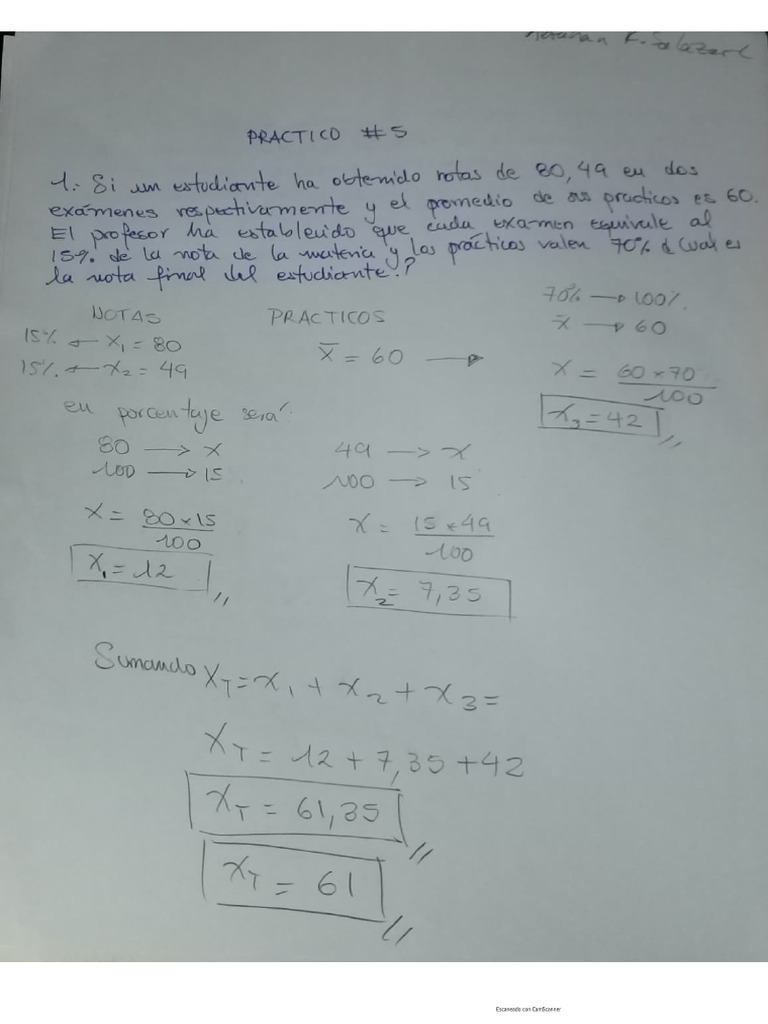 K. Salazar
PRACTICO #5
1.- Si un estudiante ha obtenido notas de 80, 49 en dos
exámenes respectivamente y el promedio de sus practicos es 60.
El profesor ha establecido que cada examen equivale al
15% de la nota de la materia y los prácticos valen 70% ¿Cual es
la nota final del estudiante?
NOTAS
15% ← X₁ = 80
15% ← X₂ = 49
PRACTICOS
x̄ = 60 →
70% → 100%
x̄ → 60
X = 60 × 70
100
X₃ = 42
en porcentaje será:
80 → X
100 → 15
X = 80 × 15
100
X₁ = 12
49 → X
100 → 15
X = 15 × 49
100
X₂ = 7,35
Sumando X_T = X₁ + X₂ + X₃ =
X_T = 12 + 7,35 + 42
X_T = 61,35
X_T = 61
Escaneado con CamScanner